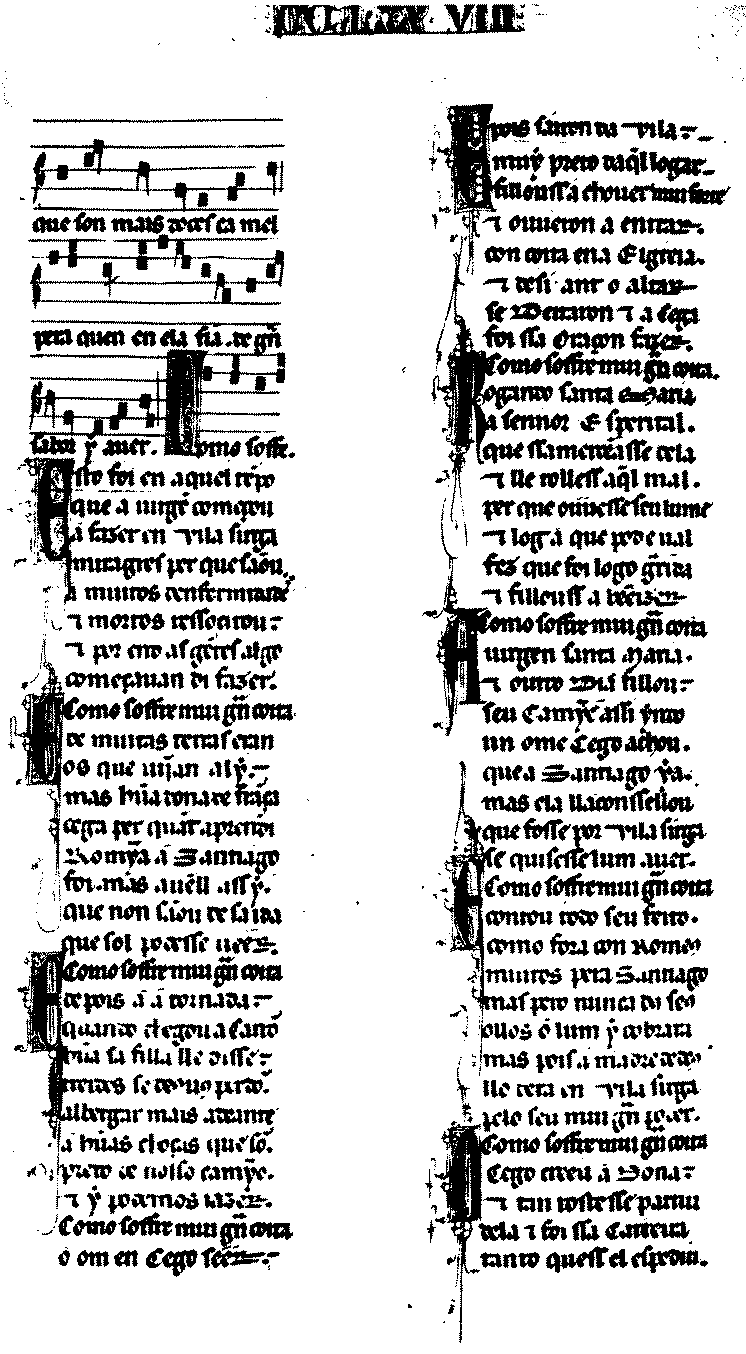 que son mais doces ca mel
pera quen en ela fia. de gñ
sabor y auer. Como soffre.
Esto foi en aquel tẽpo
que a uirgẽ começou
a fazer en vila sirga
miragres per que sãou
a muitos denfermidade
⁊ mortos ressocitou
⁊ por end as gẽtes algo
começauan di fazer.
Como soffre mui gñ coita
de muitas terras eran
os que uijan aly.
mas hũa dona de frãça
cega per quãt aprendi
Romeya a Santiago
foi. mas auẽll assy.
que non sãou de sa ida
que sol podesse ueer.
Como soffre mui gñ coita
depois aa tornada
quando chegou a Carrõ
hũa sa filla lle disse
albergar mais adeante
a hũas choças que so.
preto de nosso camỹo.
⁊ y podemos iazer.
Como soffre mui gñ coita
o om en Cego seer
Pois sairon da vila
muy preto daq̃l logar
fillouss a chouer mui forte
⁊ ouueron a entrar
con coita ena Eigreia.
⁊ desi ant o altar
se Deitaron ⁊ a Cega
foi ssa Oraçon fazer.
Como soffre mui gñ coita.
Rogando Santa Maria
a sennor Esperital.
que ssa mercẽasse dela
⁊ lle tolless aq̃l mal.
per que ouuesse seu lume
⁊ log a que pod e ual
fez que foi logo grida
⁊ fillouss a beeizer
Como soffre mui gñ coita
A uirgen santa Maria.
⁊ outro Dia fillou
seu Camỹ e assi ỹndo
un ome Cego achou.
que a Santiago ya.
mas ela ll aconssellou
que fosse por vila sirga
se quisesse lum auer.
Como soffre mui gñ coita
E contou todo seu feito.
como fora con Romeos
muitos pera Santiago
mas pero nunca dos seos
ollos o lum y cobrara
mas pois a madre de ds
llo dera en vila sirga
pelo seu mui gñ poder.
Como soffre mui gñ coita
O Cego creeu a Dona
⁊ tan toste sse partiu
dela ⁊ foi ssa Carreira
tanto quess el espediu.